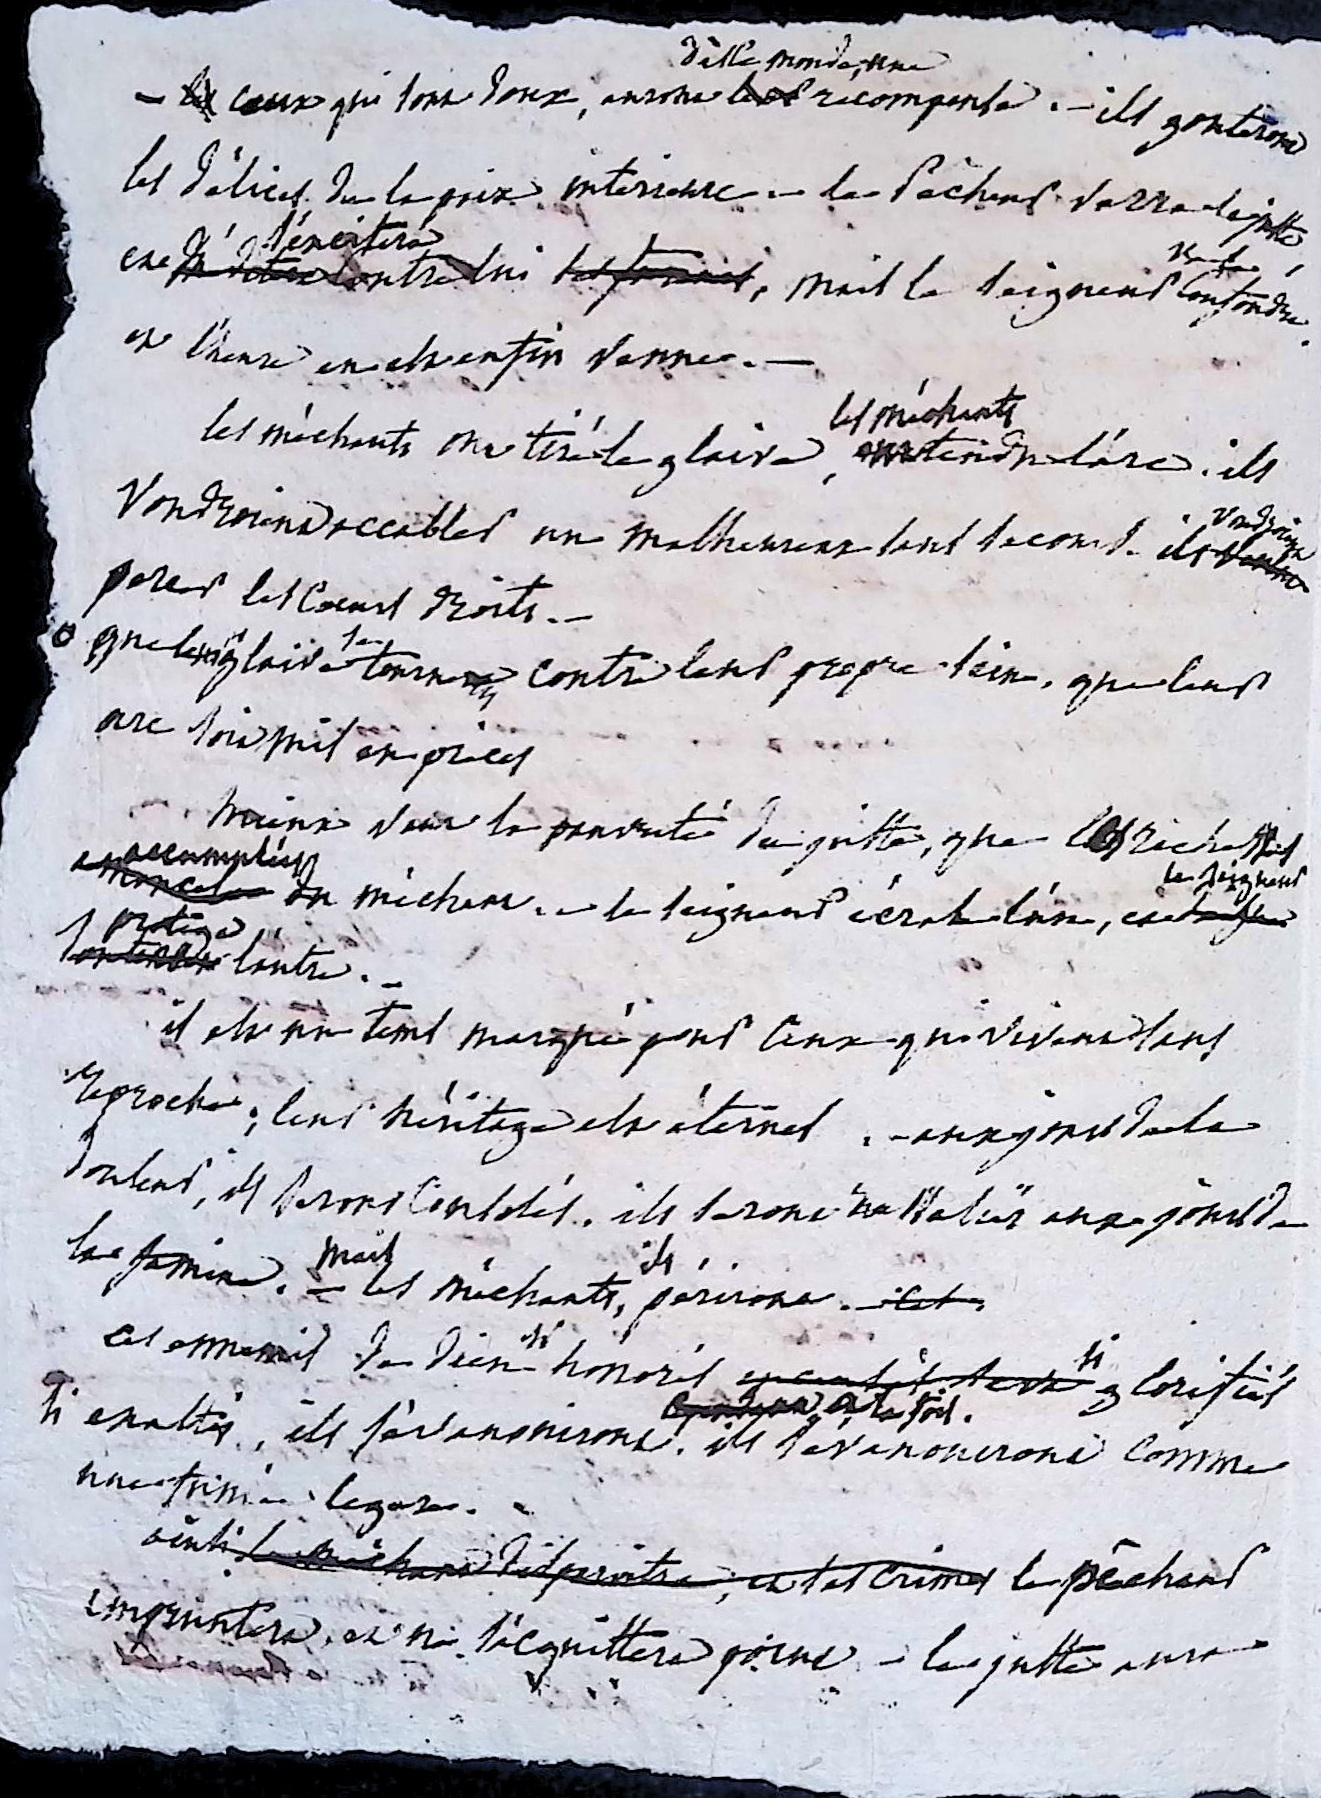 dès le monde, une
— les ceux qui sont doux, auront leur recompense. — ils gouteront
les délices de la paix interieure — le pécheur verra le juste,
s'excitera
et contre lui, mais le seigneur va le confondre.
et l'heure en est enfin venue. —
les méchants
les méchants ont tiré le glaive, ont tendu l'arc. ils
voudroient accabler un malheureux sans secours. ils voudroient
percer les cœurs droits. —
que le glaive se tourne contre leur propre sein. que leur
arc soit mis en pieces
mieux vaut la pauvreté du juste, que les richesses
accumulées du méchant. — le seigneur écrase l'un, et le seigneur
protege l'autre. —
il est un tems marqué pour ceux qui vivent sans
reproche; leur héritage est éternel. — aux jours de la
douleur, ils seront consolés. ils seront rassasiés aux jours de
la famine. — mais les méchants, ils périront.
ces ennemis de dieu si honorés si glorifiés
si exaltés, ils s'évanouiront. ils s'évanouiront comme
une fumée legere. —
ainsi le méchant disparoitra, et ses crimes le pêcheur
empruntera, et ne s'acquittera point — le juste aura